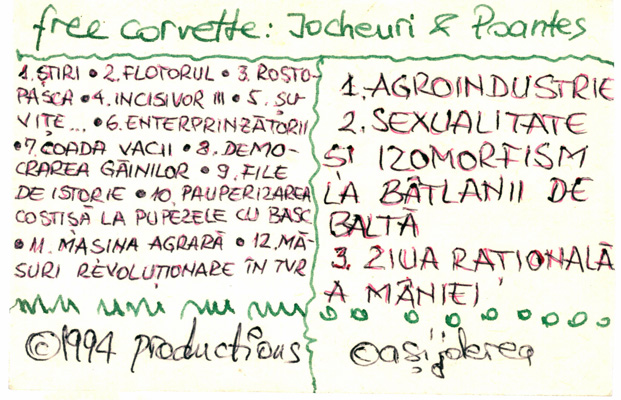 free corvette: Jocheuri & Poantes
1. ȘTIRI • 2. FLOTORUL • 3. ROSTO-
PASCA • 4. INCISIVOR III • 5. ȘU-
VIȚE... • 6. ENTERPRINZĂTORII
• 7. COADA VACII • 8. DEMO-
CRAREA GĂINILOR • 9. FILE
DE ISTORIE • 10. PAUPERIZAREA
COSTISĂ LA PUPEZELE CU BASC
• 11. MAȘINA AGRARĂ • 12. MĂ-
SURI REVOLUȚIONARE ÎN TVR
©1994 productions
1. AGROINDUSTRIE
2. SEXUALITATE
ȘI IZOMORFISM
LA BÂTLANII DE
BALTĂ
3. ZIUA RAȚIONALĂ
A MÂNIEI
© așijderea